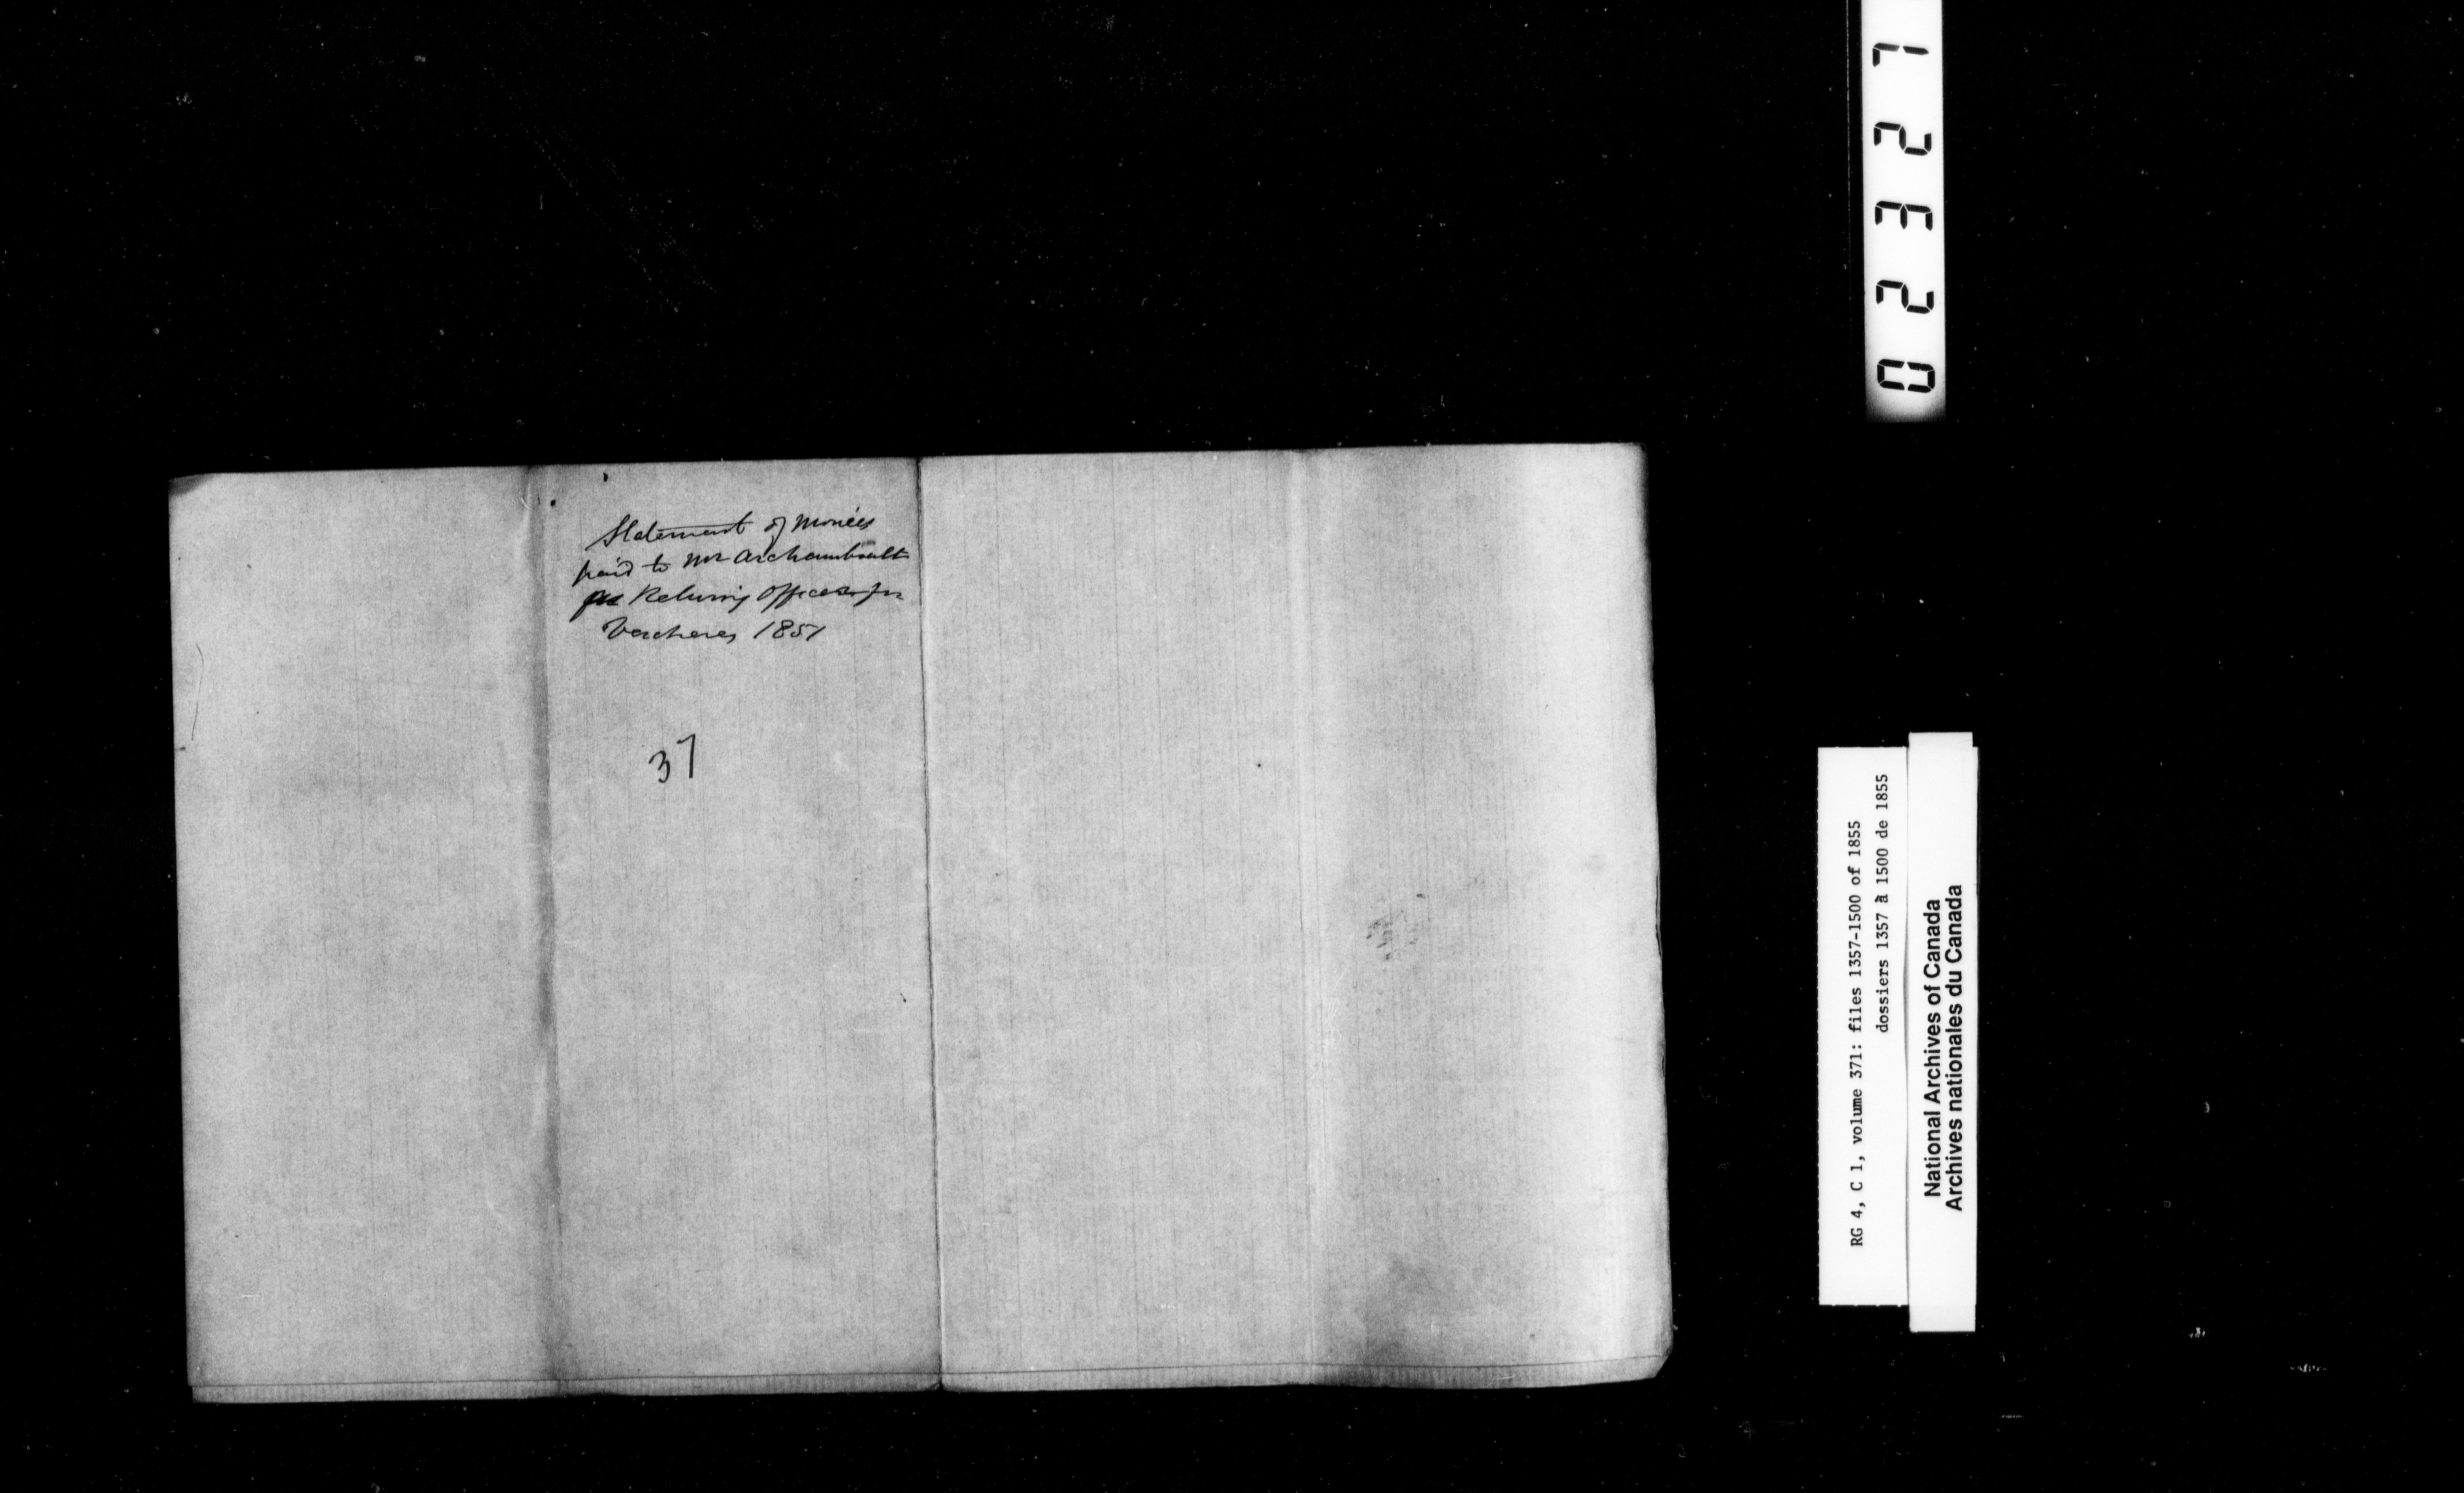 Statement of Monies
paid to Mr Archambault
Returning Officer for
Vercheres 1851
37
02327
RG 4, C 1, volume 371: files 1357-1500 of 1855
dossiers 1357 à 1500 de 1855
National Archives of Canada
Archives nationales du Canada